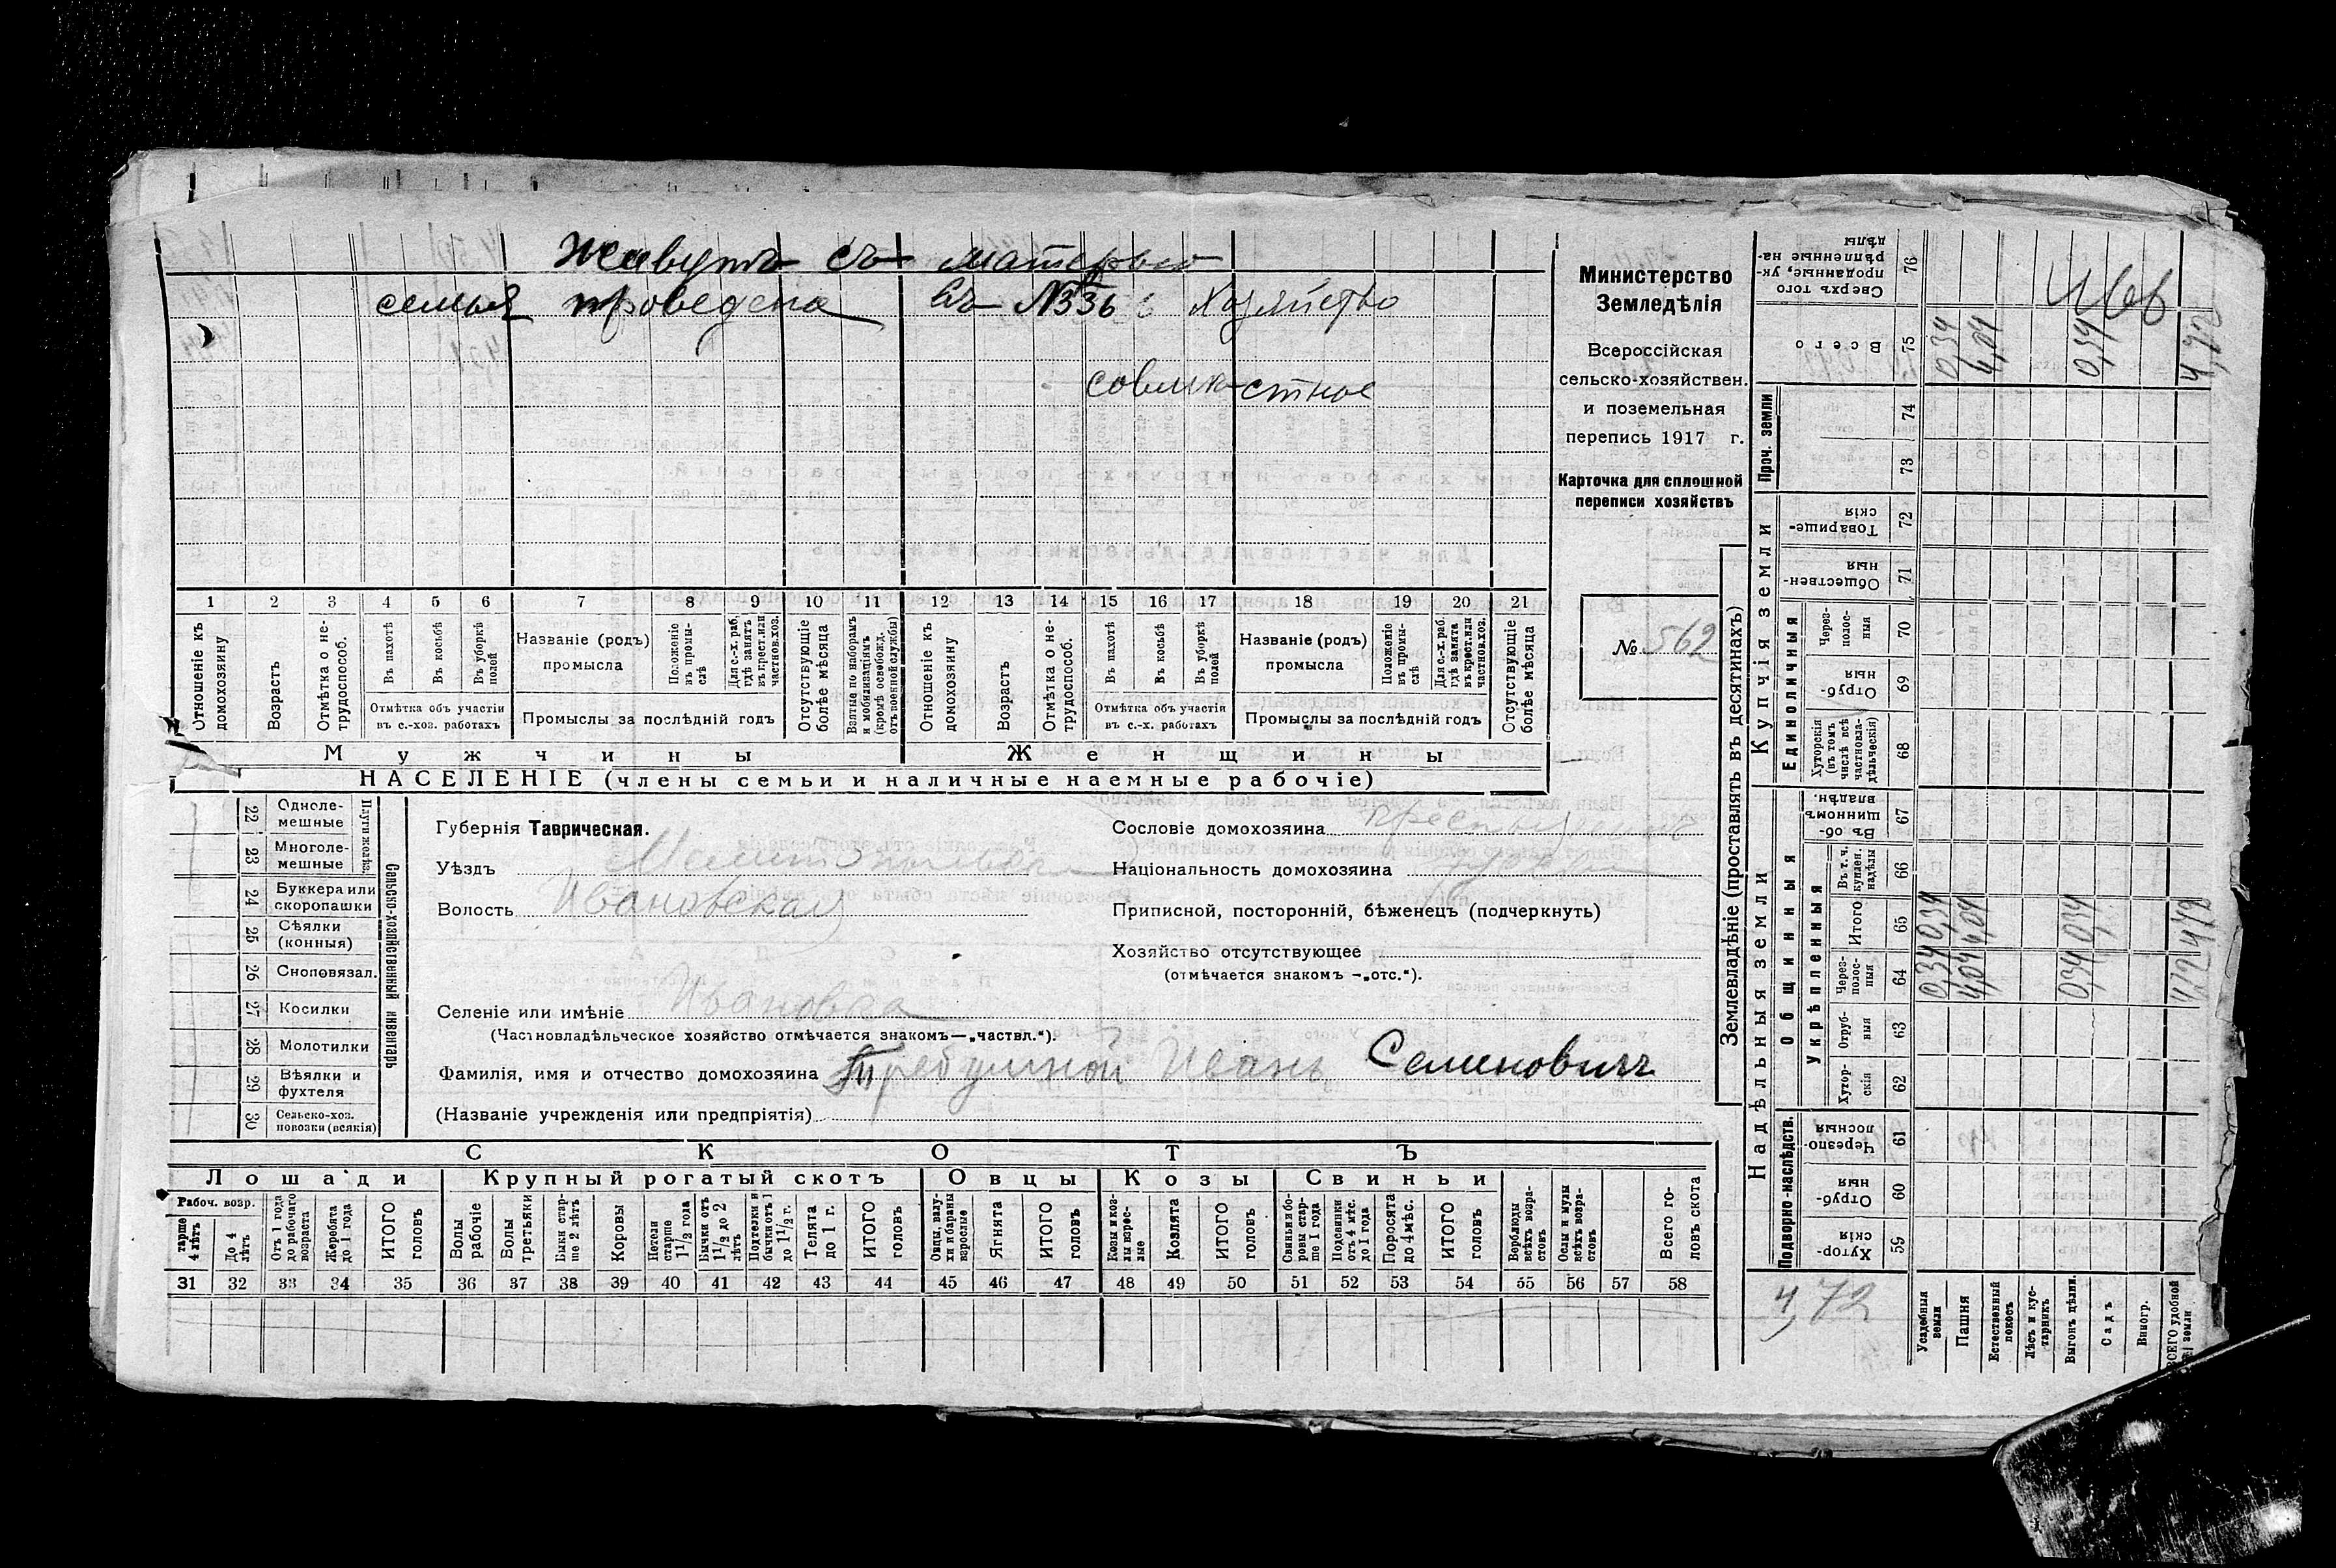 Живутъ съ матерью
семья проведена въ №336 Хозяйство
совмѣстное
1 2 3 4 5 6 7 8 9 10 11 12 13 14 15 16 17 18 19 20 21
Отношеніе къ домохозяину
Возрастъ
Отмѣтка о нетрудоспособ.
Въ пахотѣ
Въ косьбѣ
Въ уборкѣ полей
Отмѣтка объ участіи въ с.-хоз. работахъ
Названіе (родъ) промысла
Положеніе въ промыслѣ
Для с.-х. раб. гдѣ занятъ въ крест. или частнов. хоз.
Промыслы за послѣдній годъ
Отсутствующіе болѣе мѣсяца
Взятые по наборамъ и мобилизаціямъ (кромѣ освобожд. отъ военной службы)
Отношеніе къ домохозяину
Возрастъ
Отмѣтка о нетрудоспособ.
Въ пахотѣ
Въ косьбѣ
Въ уборкѣ полей
Отмѣтка объ участіи въ с.-х. работахъ
Названіе (родъ) промысла
Положеніе въ промыслѣ
Для с.-х. раб. гдѣ занята въ крест. или частнов. хоз.
Промыслы за послѣдній годъ
Отсутствующіе болѣе мѣсяца
Мужчины Женщины
НАСЕЛЕНІЕ (члены семьи и наличные наемные рабочіе)
Министерство
Земледѣлія
Всероссійская
сельско-хозяйствен.
и поземельная
перепись 1917 г.
Карточка для сплошной
переписи хозяйствъ
№ 562
Сельско-хозяйственный инвентарь
Плуги желѣз.
22 Одноле-
мешные
23 Многоле-
мешные
24 Буккера или
скоропашки
25 Сѣялки
(конныя)
26 Сноповязал.
27 Косилки
28 Молотилки
29 Вѣялки и
фухтеля
30 Сельско-хоз.
повозки (всякія)
Губернія Таврическая.
Уѣздъ Мелитопольскій
Волость Ивановская
Селеніе или имѣніе Ивановка
(Частновладѣльческое хозяйство отмѣчается знакомъ—„частвл.“).
Фамилія, имя и отчество домохозяина Иванъ Семеновичъ
(Названіе учрежденія или предпріятія)
Сословіе домохозяина
Національность домохозяина
Приписной, посторонній, бѣженецъ (подчеркнуть)
Хозяйство отсутствующее
(отмѣчается знакомъ —„отс.“).
СКОТЪ
Лошади Крупный рогатый скотъ Овцы Козы Свиньи
Рабоч. возр.
тарше 4 лѣтъ
До 4 лѣтъ
Отъ 1 года до рабочаго возраста
Жеребята до 1 года
ИТОГО головъ
Волы рабочіе
Волы третьяки
Быки старше 2 лѣтъ
Коровы
Нетели старше 1 1/2 года
Бычки отъ 1 1/2 до 2 лѣтъ
Подтелки и бычки отъ 1 до 1 1/2 г.
Телята до 1 г.
ИТОГО головъ
Овцы, валухи и бараны взрослые
Ягнята
ИТОГО головъ
Козы и козлы взрослые
Козлята
ИТОГО головъ
Свиньи и боровы старше 1 года
Подсвинки отъ 4 мѣс. до 1 года
Поросята до 4 мѣс.
ИТОГО головъ
Верблюды всѣхъ возрастовъ
Ослы и мулы всѣхъ возрастовъ
Всего головъ скота
31 32 33 34 35 36 37 38 39 40 41 42 43 44 45 46 47 48 49 50 51 52 53 54 55 56 57 58
Землевладѣніе (проставлять въ десятинахъ)
Надѣльныя земли
Купчія земли
Проч. земли
Подворно-наслѣдств.
Общинныя
Укрѣпленныя
Единоличныя
59 Хуторскія
60 Отрубныя
61 Черезполосныя
62 Хуторскія
63 Отрубныя
64 Черезполосныя 0,34 4,04 0,34 4,72
65 Итого 0,34 4,04 0,34 4,72
66 Въ т. ч. купчен. надѣлы
67 Въ общинномъ владѣн.
68 Хуторскія (въ томъ числѣ всѣ частновладѣльческія)
69 Отрубныя
70 Черезполосныя
71 Общественныя
72 Товарищескія
73
74
75 Всего 0,34 4,04 0,34 4,72
76 Сверхъ того проданные, укрѣпленные надѣлы
4,72
Усадебныя земли
Пашня
Естественный покосъ
Лѣсъ и кустарникъ
Выгонъ цѣлин.
Садъ
Виногр.
ВСЕГО удобной земли